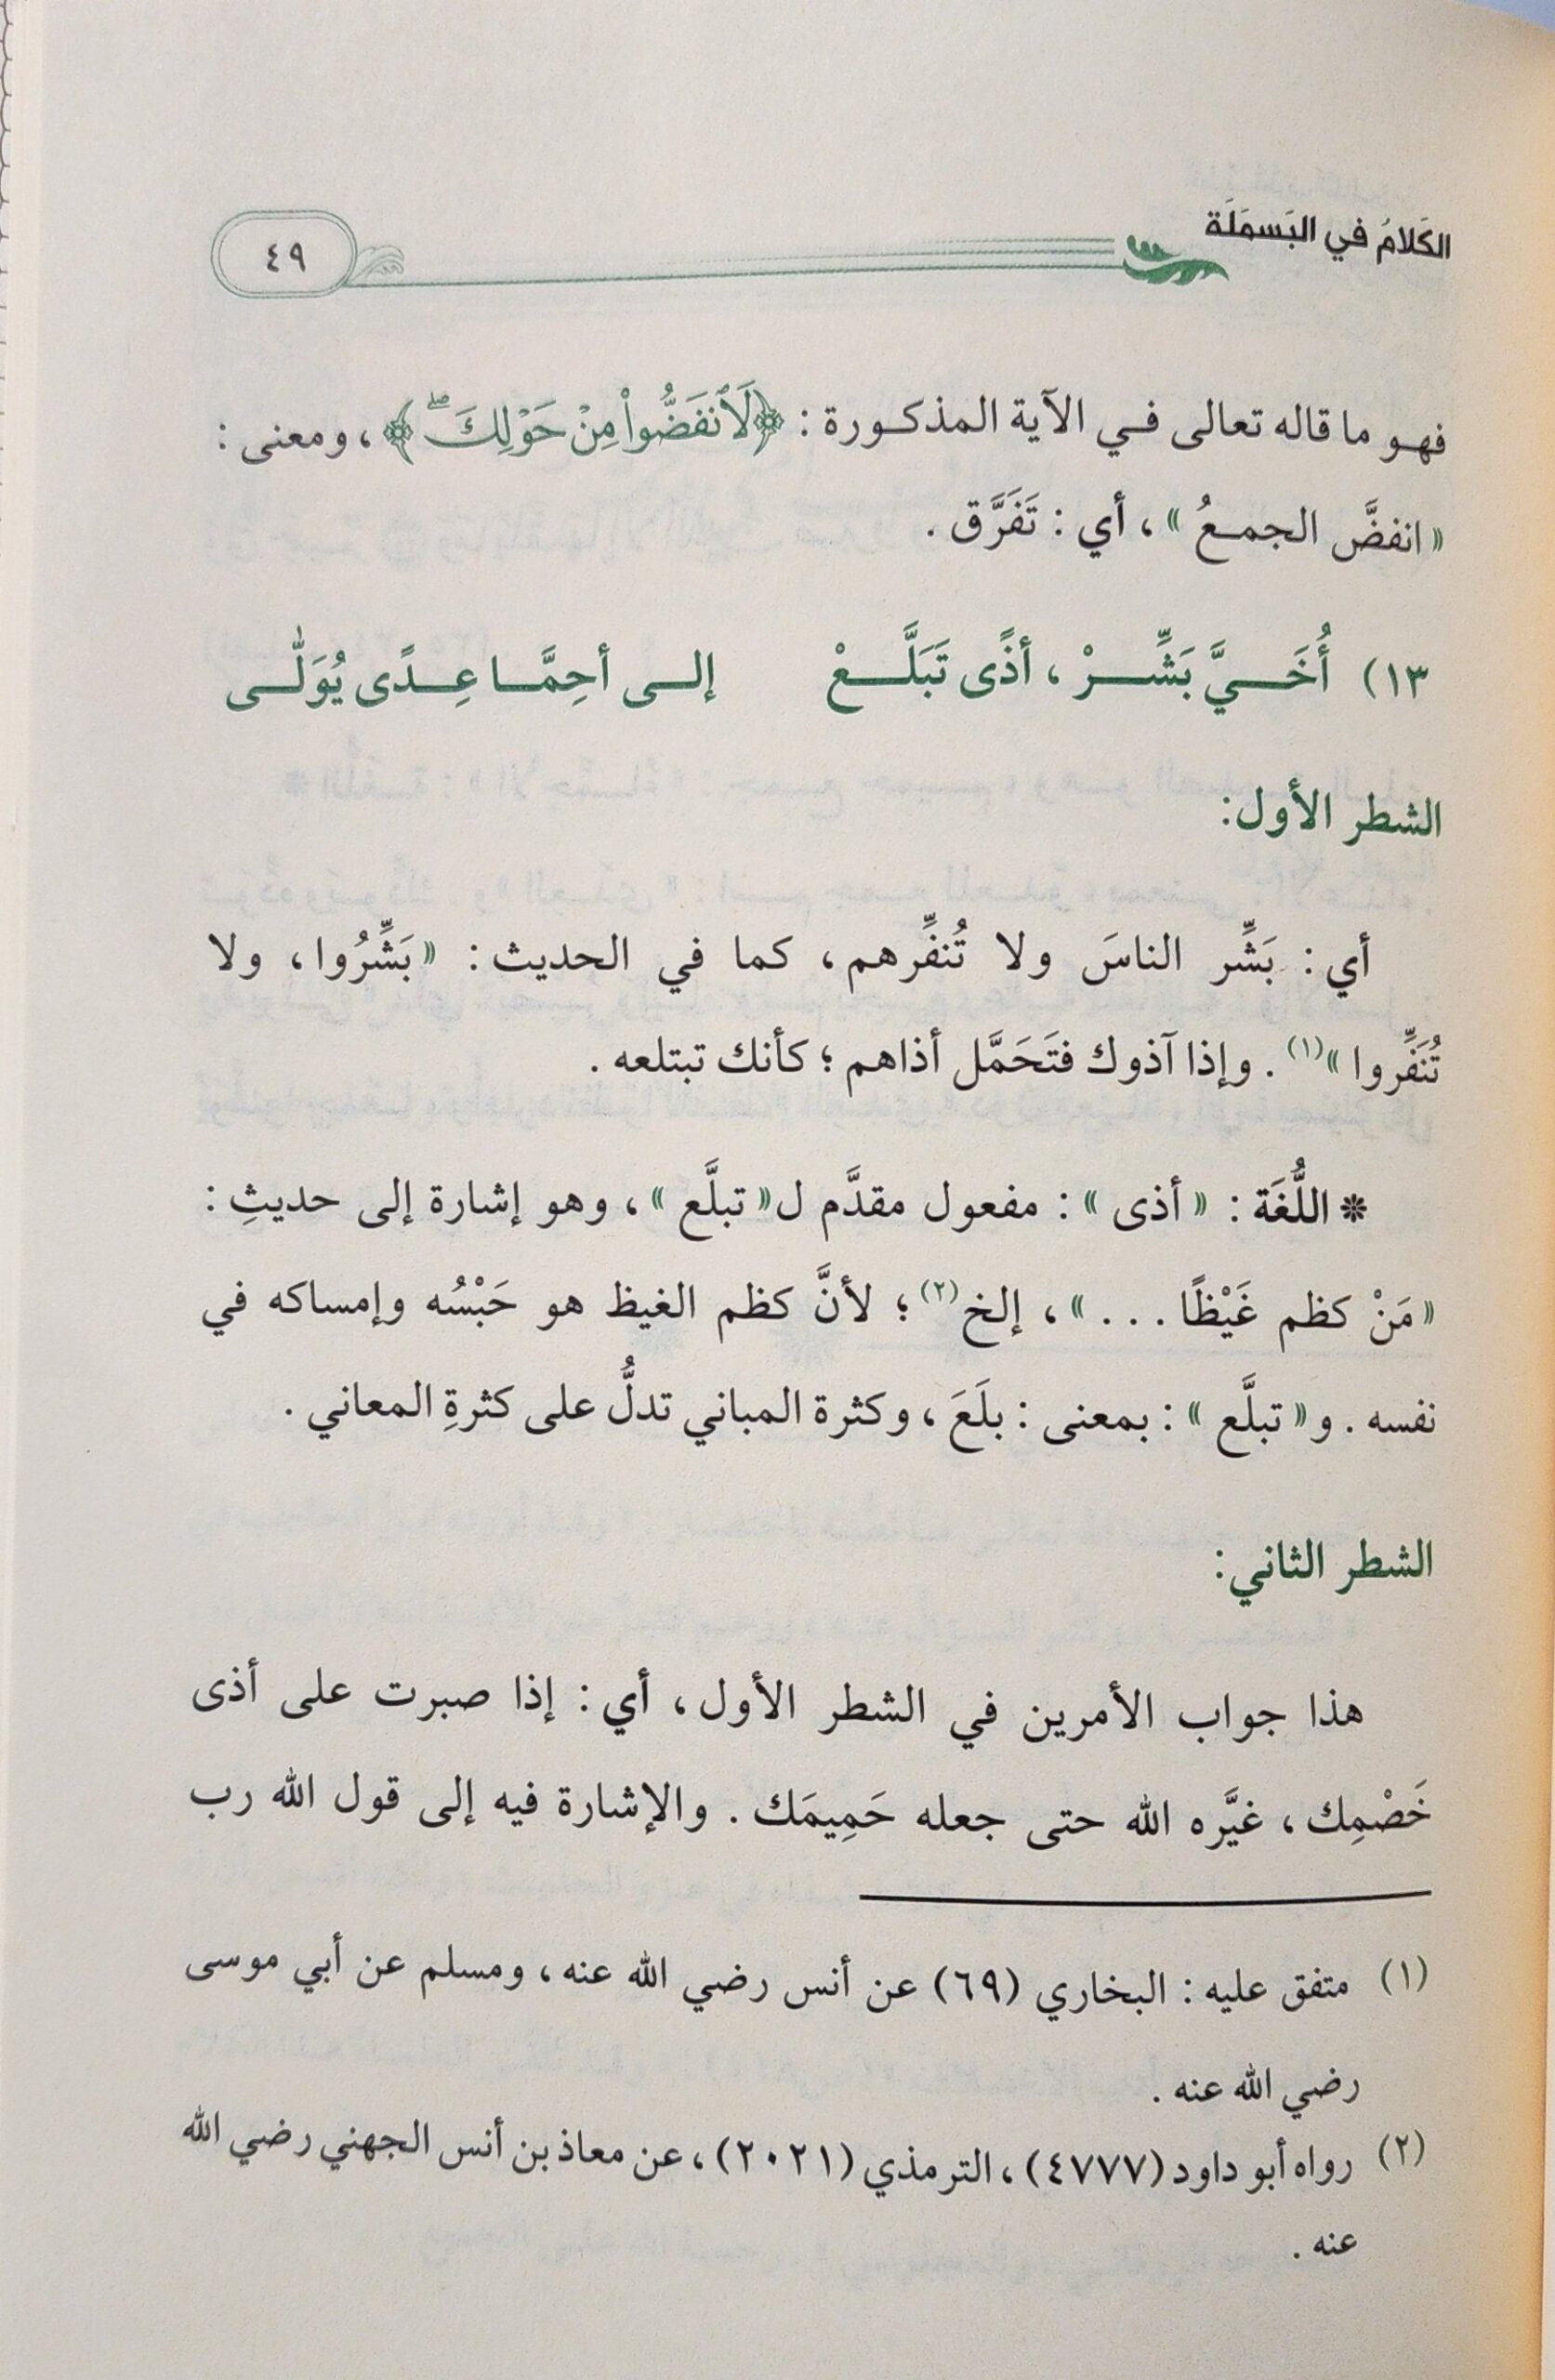 الكَلامُ في البَسمَلَة
٤٩
فهو ما قاله تعالى في الآية المذكورة : ﴿لَٱنفَضُّواْ مِنۡ حَوۡلِكَۖ﴾ ، ومعنى :
« انفضَّ الجمعُ » ، أي : تَفَرَّق .
١٣) أُخَيَّ بَشِّرْ ، أذًى تَبَلَّعْ إلى أحِمَّا عِدًى يُوَلّٰى
الشطر الأول:
أي : بَشِّر الناسَ ولا تُنفِّرهم ، كما في الحديث : « بَشِّرُوا ، ولا
تُنَفِّروا »(١) . وإذا آذوك فتَحَمَّل أذاهم ؛ كأنك تبتلعه .
* اللُّغَة : « أذى » : مفعول مقدَّم ل« تبلَّع » ، وهو إشارة إلى حديثِ :
« مَنْ كظم غَيْظًا . . . » ، إلخ(٢) ؛ لأنَّ كظم الغيظ هو حَبْسُه وإمساكه في
نفسه . و« تبلَّع » : بمعنى : بلَعَ ، وكثرة المباني تدلُّ على كثرةِ المعاني .
الشطر الثاني:
هذا جواب الأمرين في الشطر الأول ، أي : إذا صبرت على أذى
خَصْمِك ، غيَّره الله حتى جعله حَمِيمَك . والإشارة فيه إلى قول الله رب
(١) متفق عليه : البخاري (٦٩) عن أنس رضي الله عنه ، ومسلم عن أبي موسى
رضي الله عنه .
(٢) رواه أبو داود (٤٧٧٧) ، الترمذي (٢٠٢١) ، عن معاذ بن أنس الجهني رضي الله
عنه .